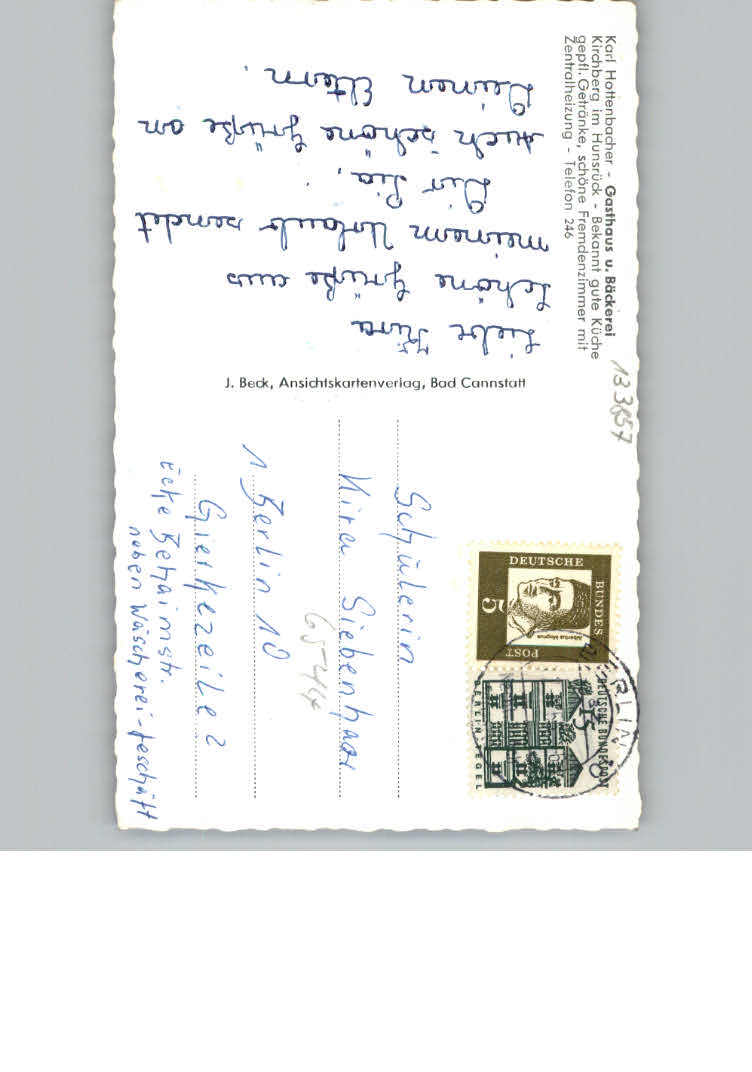 Karl Hottenbacher - Gasthaus u. Bäckerei
Kirchberg im Hunsrück - Bekannt gute Küche
gepfl. Getränke, schöne Fremdenzimmer mit
Zentralheizung - Telefon 246
133657
Liebe Kira
Schöne Grüße aus
meinem Urlaub sendet
Dir Pia,
auch schöne Grüße an
Deinen Eltern.
J. Beck, Ansichtskartenverlag, Bad Cannstatt
DEUTSCHE
BUNDES
POST
5
Albertus Magnus
DEUTSCHE BUNDESPOST
15
BERLIN TEGEL
BERLIN
Schülerin
Kira Siebenhaar
6544
1 Berlin 10
Gierkezeile 2
Ecke Behaimstr.
neben Wäscherei-Geschäft